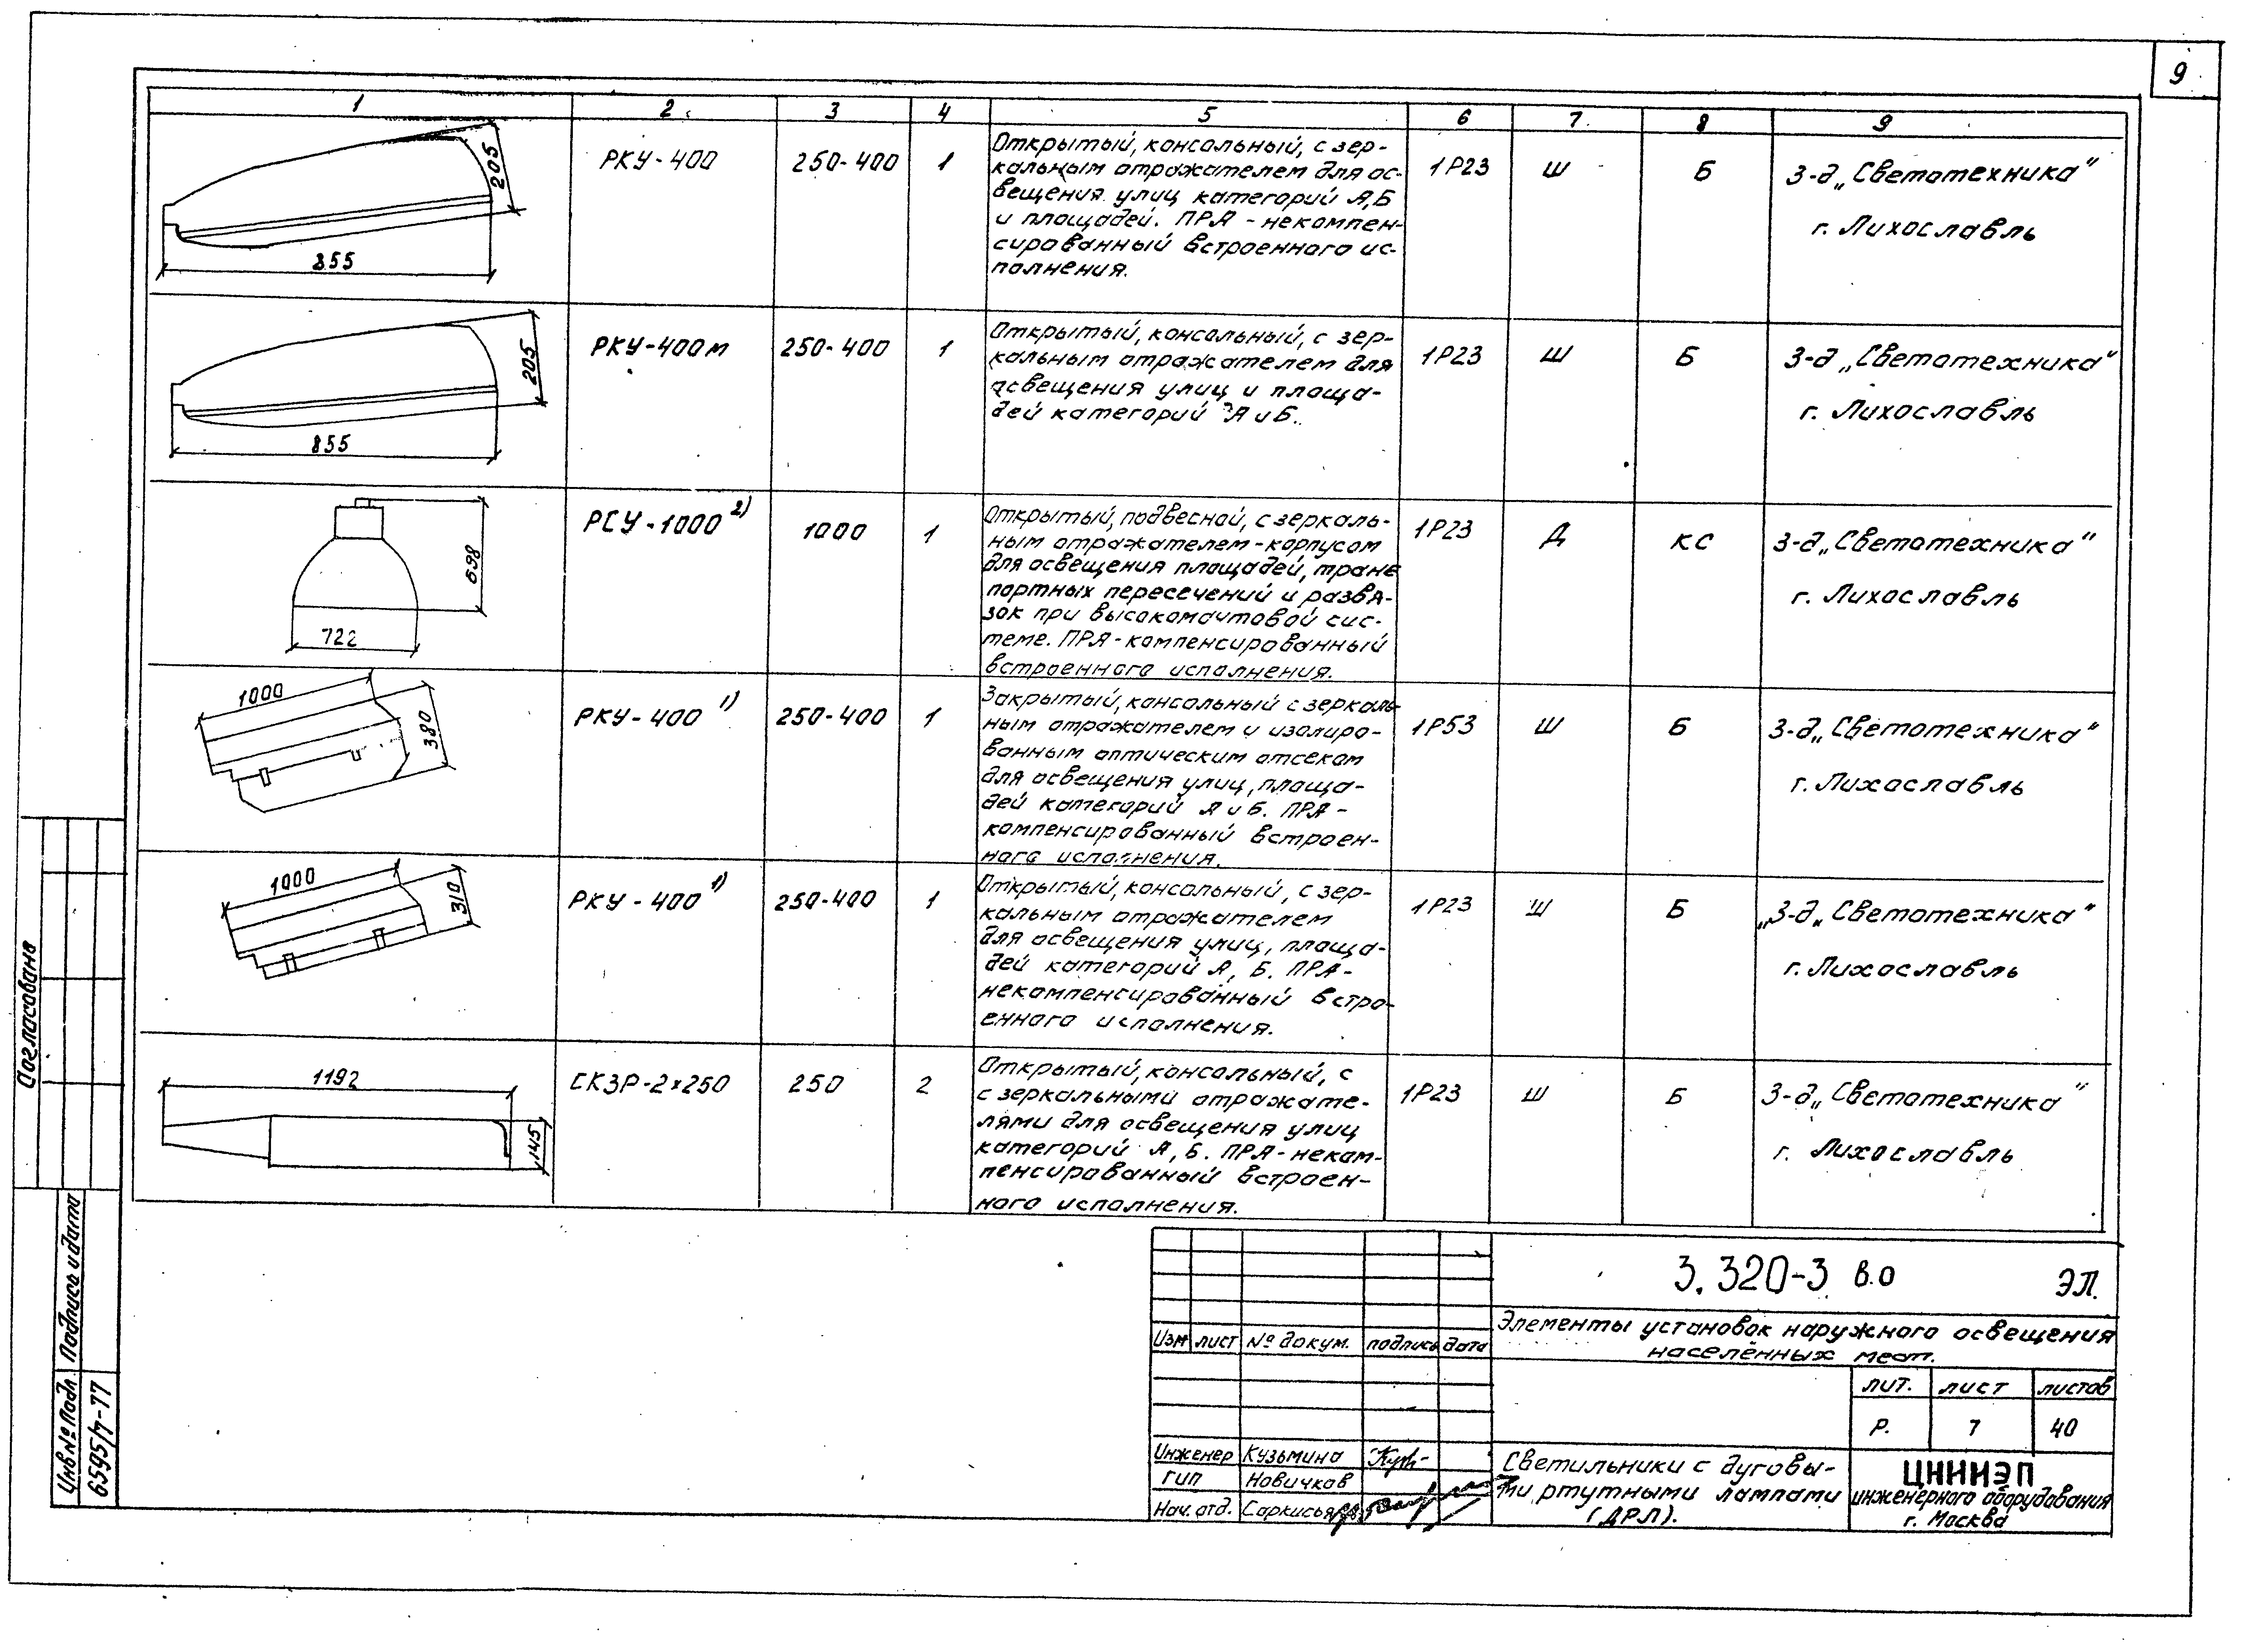 9
1 2 3 4 5 6 7 8 9
205
855
РКУ-400
250-400
1
Открытый, консольный, с зер-
кальным отражателем для ос-
вещения улиц категорий А,Б
и площадей. ПРА - некомпен-
сированный встроенного ис-
полнения.
1Р23
Ш
Б
З-д „Светотехника"
г. Лихославль
205
855
РКУ-400м
250-400
1
Открытый, консольный, с зер-
кальным отражателем для
освещения улиц и площа-
дей категорий А и Б.
1Р23
Ш
Б
З-д „Светотехника"
г. Лихославль
698
722
РСУ-1000 2)
1000
1
Открытый, подвесной, с зеркаль-
ным отражателем-корпусом
для освещения площадей, транс
портных пересечений и развя-
зок при высокомачтовой сис-
теме. ПРА - компенсированный
встроенного исполнения.
1Р23
Д
КС
З-д „Светотехника"
г. Лихославль
1000
380
РКУ-400 1)
250-400
1
Закрытый, консольный с зеркаль-
ным отражателем и изолиро-
ванным оптическим отсеком
для освещения улиц, площа-
дей категорий А и Б. ПРА -
компенсированный встроен-
ного исполнения.
1Р53
Ш
Б
З-д „Светотехника"
г. Лихославль
1000
310
РКУ-400 1)
250-400
1
Открытый, консольный, с зер-
кальным отражателем
для освещения улиц, площа-
дей категорий А, Б. ПРА-
некомпенсированный встро-
енного исполнения.
1Р23
Ш
Б
„З-д „Светотехника"
г. Лихославль
1192
145
СКЗР-2×250
250
2
Открытый, консольный, с
с зеркальными отражате-
лями для освещения улиц
категорий А, Б. ПРА-неком-
пенсированный встроен-
ного исполнения.
1Р23
Ш
Б
З-д „Светотехника"
г. Лихославль
Согласовано
Подпись и дата
Инв № Подл.
6595/7-77
3.320-3 в.0 ЭЛ.
Элементы установок наружного освещения
населённых мест.
Изм лист № докум. подпись дата
лит. лист листов
Р. 7 40
Инженер Кузьмина
ГИП Новичков
Нач. отд.
Светильники с дуговы-
ми ртутными лампами
(ДРЛ).
ЦНИИЭП
инженерного оборудования
г. Москва